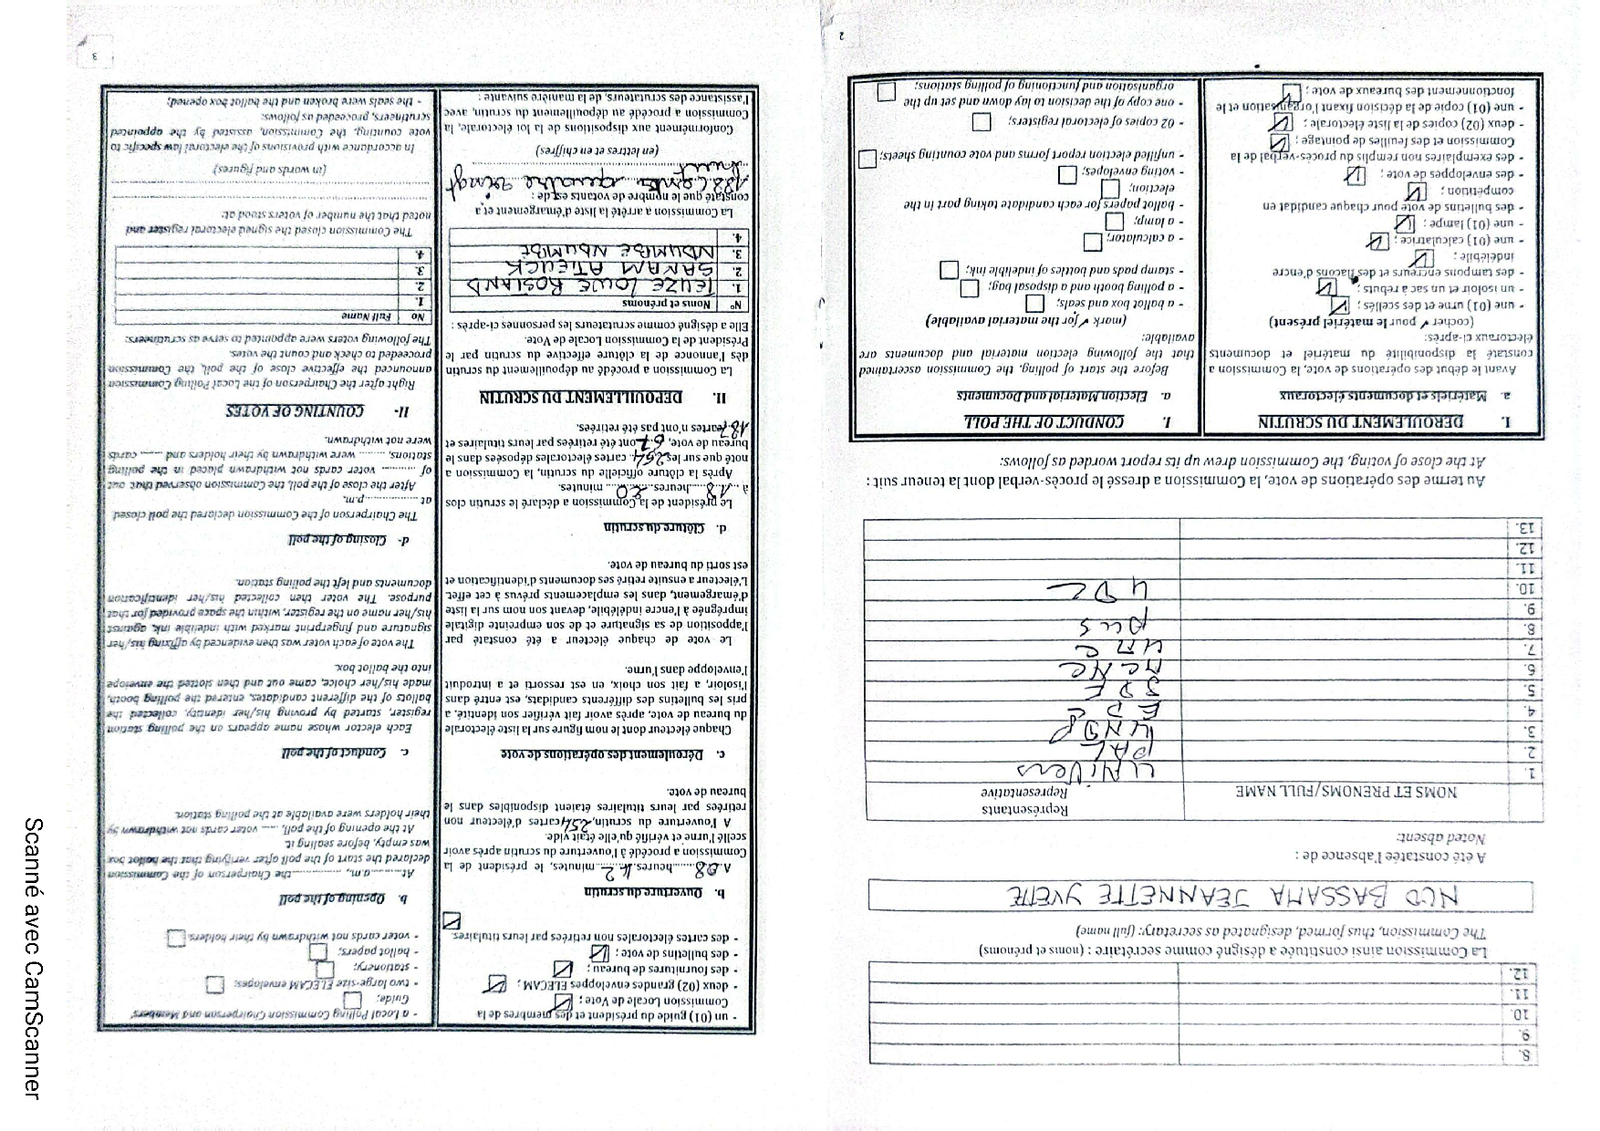 2
8.
9.
10.
11.
12.
La Commission ainsi constituée a désigné comme secrétaire : (noms et prénoms)
The Commission, thus formed, designated as secretary: (full name)
NGO BASSAMA JEANNETTE YVETTE
A été constatée l'absence de :
Noted absent:
NOMS ET PRENOMS/FULL NAME
Représentants
Representative
1. UNIVERS
2. PAL
3. UNDP
4. EDC
5. SDF
6. MCNC
7. UMC
8. PUS
9.
10. UDC
11.
12.
13.
Au terme des opérations de vote, la Commission a dressé le procès-verbal dont la teneur suit :
At the close of voting, the Commission drew up its report worded as follows:
I. DEROULEMENT DU SCRUTIN
a. Matériels et documents électoraux
Avant le début des opérations de vote, la Commission a
constaté la disponibilité du matériel et documents
électoraux ci-après:
(cocher ✓ pour le matériel présent)
- une (01) urne et des scellés ;
- un isoloir et un sac à rebuts ;
- des tampons encreurs et des flacons d'encre
indélébile ;
- une (01) calculatrice ;
- une (01) lampe ;
- des bulletins de vote pour chaque candidat en
compétition ;
- des enveloppes de vote ;
- des exemplaires non remplis du procès-verbal de la
Commission et des feuilles de pointage ;
- deux (02) copies de la liste électorale ;
- une (01) copie de la décision fixant l'organisation et le
fonctionnement des bureaux de vote ;
I. CONDUCT OF THE POLL
a. Election Material and Documents
Before the start of polling, the Commission ascertained
that the following election material and documents are
available:
(mark ✓ for the material available)
- a ballot box and seals;
- a polling booth and a disposal bag;
- stamp pads and bottles of indelible ink;
- a calculator;
- a lamp;
- ballot papers for each candidate taking part in the
election;
- voting envelopes;
- unfilled election report forms and vote counting sheets;
- 02 copies of electoral registers;
- one copy of the decision to lay down and set up the
organisation and functioning of polling stations;
3
- un (01) guide du président et des membres de la
Commission Locale de Vote ;
- deux (02) grandes enveloppes ELECAM ;
- des fournitures de bureau ;
- des bulletins de vote ;
- des cartes électorales non retirées par leurs titulaires.
b. Ouverture du scrutin
A 08 heures 42 minutes, le président de la
Commission a procédé à l'ouverture du scrutin après avoir
scellé l'urne et vérifié qu'elle était vide.
A l'ouverture du scrutin, 254 cartes d'électeur non
retirées par leurs titulaires étaient disponibles dans le
bureau de vote.
c. Déroulement des opérations de vote
Chaque électeur dont le nom figure sur la liste électorale
du bureau de vote, après avoir fait vérifier son identité, a
pris les bulletins des différents candidats, est entré dans
l'isoloir, a fait son choix, en est ressorti et a introduit
l'enveloppe dans l'urne.
Le vote de chaque électeur a été constaté par
l'apposition de sa signature et de son empreinte digitale
imprégnée à l'encre indélébile, devant son nom sur la liste
d'émargement, dans les emplacements prévus à cet effet
L'électeur a ensuite retiré ses documents d'identification et
est sorti du bureau de vote.
d. Clôture du scrutin
Le président de la Commission a déclaré le scrutin clos
à 18 heures 20 minutes.
Après la clôture officielle du scrutin, la Commission a
noté que sur les 254 cartes électorales déposées dans le
bureau de vote, 67 ont été retirées par leurs titulaires et
187 cartes n'ont pas été retirées.
II. DEPOUILLEMENT DU SCRUTIN
La Commission a procédé au dépouillement du scrutin
dès l'annonce de la clôture effective du scrutin par le
Président de la Commission Locale de Vote.
Elle a désigné comme scrutateurs les personnes ci-après :
N° Noms et prénoms
1. TEUZE LOWE ROSLAND
2. SANAM ATECK
3. NDUMBE NDUMBE
4.
La Commission a arrêté la liste d'émargement et a
constaté que le nombre de votants est de :
188 Cent quatre vingt
huit
(en lettres et en chiffres)
Conformément aux dispositions de la loi électorale, la
Commission a procédé au dépouillement du scrutin, avec
l'assistance des scrutateurs, de la manière suivante :
- a Local Polling Commission Chairperson and Members'
Guide;
- two large-size ELECAM envelopes;
- stationery;
- ballot papers;
- voter cards not withdrawn by their holders.
b. Opening of the poll
At..........a.m., ..............the Chairperson of the Commission
declared the start of the poll after verifying that the ballot box
was empty, before sealing it.
At the opening of the poll, ...... voter cards not withdrawn by
their holders were available at the polling station.
c. Conduct of the poll
Each elector whose name appears on the polling station
register, started by proving his/her identity, collected the
ballots of the different candidates, entered the polling booth,
made his/her choice, came out and then slotted the envelope
into the ballot box.
The vote of each voter was then evidenced by affixing his/her
signature and fingerprint marked with indelible ink, against
his/her name on the register, within the space provided for that
purpose. The voter then collected his/her identification
documents and left the polling station.
d- Closing of the poll
The Chairperson of the Commission declared the poll closed
at ................p.m.
After the close of the poll, the Commission observed that out
of .......... voter cards not withdrawn placed in the polling
stations, ........ were withdrawn by their holders and ....... cards
were not withdrawn.
II- COUNTING OF VOTES
Right after the Chairperson of the Local Polling Commission
announced the effective close of the poll, the Commission
proceeded to check and count the votes.
The following voters were appointed to serve as scrutineers:
No Full Name
1.
2.
3.
4.
The Commission closed the signed electoral register and
noted that the number of voters stood at:
(in words and figures)
In accordance with provisions of the electoral law specific to
vote counting, the Commission, assisted by the appointed
scrutineers, proceeded as follows:
- the seals were broken and the ballot box opened;
Scanné avec CamScanner